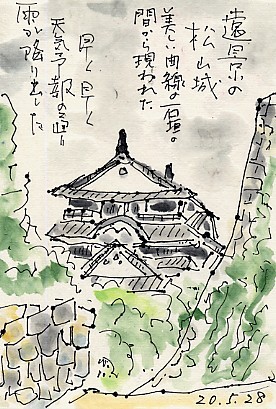 遠景の
松山城
美しい曲線の石垣の
間から現われた
早く早く
天気予報の通り
雨が降り出した
20.5.28